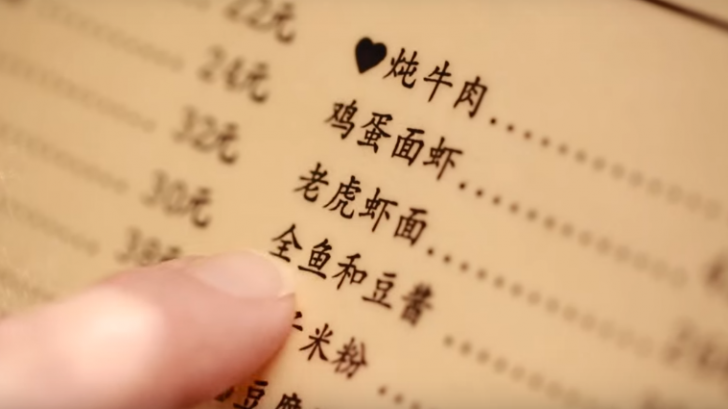 22元
24元
32元
30元
38元
♥炖牛肉
鸡蛋面虾
老虎虾面
全鱼和豆酱
米粉
豆腐